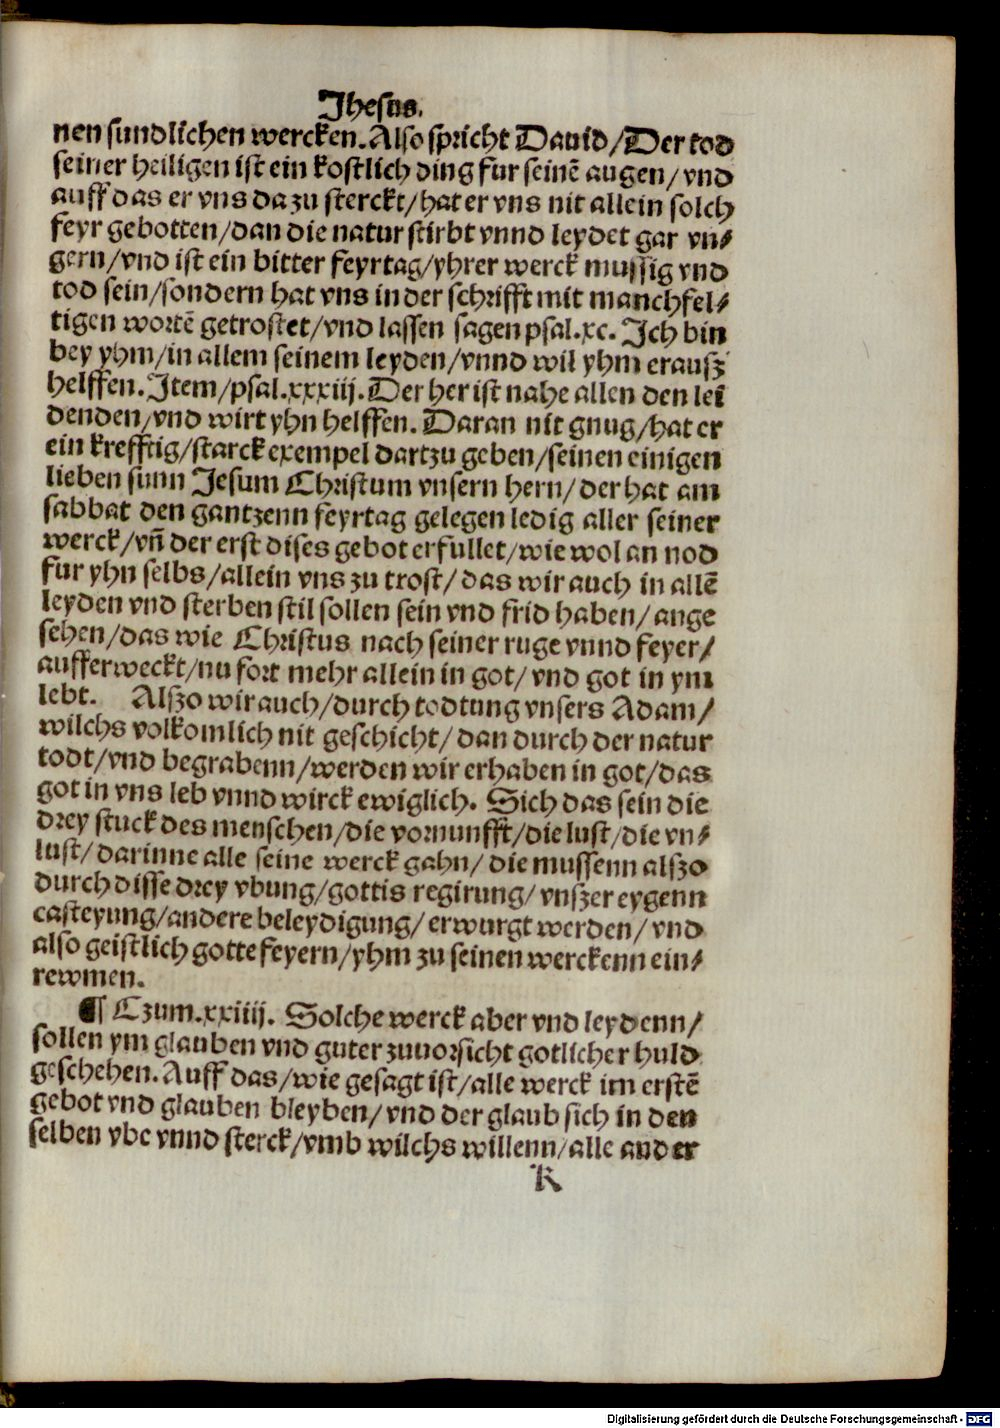 Jhesus.
nen sundlichen wercken. Also spricht Dauid/Der tod
seiner heiligen ist ein kostlich ding fur seinē augen/vnd
auff das er vns da zu sterckt/hat er vns nit allein solch
feyr gebotten/dan die natur stirbt vnnd leydet gar vn⸗
gern/vnd ist ein bitter feyrtag/yhrer werck mussig vnd
tod sein/sondern hat vns in der schrifft mit manchfel⸗
tigen wortē getrostet/vnd lassen sagen psal.xc. Ich bin
bey yhm/in allem seinem leyden/vnnd wil yhm erausz
helffen. Item/psal.xxxiij. Der her ist nahe allen den lei
denden/vnd wirt yhn helffen. Daran nit gnug/hat er
ein krefftig/starck exempel dartzu geben/seinen einigen
lieben sunn Jesum Christum vnsern hern/der hat am
sabbat den gantzenn feyrtag gelegen ledig aller seiner
werck/vn̄ der erst dises gebot erfullet/wie wol an nod
fur yhn selbs/allein vns zu trost/das wir auch in allē
leyden vnd sterben stil sollen sein vnd frid haben/ange
sehen/das wie Christus nach seiner ruge vnnd feyer/
aufferweckt/nu fort mehr allein in got/vnd got in ym
lebt. Alszo wir auch/durch todtung vnsers Adam/
wilchs volkomlich nit geschicht/dan durch der natur
todt/vnd begrabenn/werden wir erhaben in got/das
got in vns leb vnnd wirck ewiglich. Sich das sein die
drey stuck des menschen/die vornunfft/die lust/die vn⸗
lust/darinne alle seine werck gahn/die mussenn alszo
durch disse drey vbung/gottis regirung/vnszer eygenn
casteyung/andere beleydigung/erwurgt werden/vnd
also geistlich gotte feyern/yhm zu seinen werckenn ein⸗
rewmen.
¶ Czum.xxiiij. Solche werck aber vnd leydenn/
sollen ym glauben vnd guter zuuorsicht gotlicher huld
geschehen. Auff das/wie gesagt ist/alle werck im erstē
gebot vnd glauben bleyben/vnd der glaub sich in den
selben vbe vnnd sterck/vmb wilchs willenn/alle ander
K
Digitalisierung gefördert durch die Deutsche Forschungsgemeinschaft - DFG